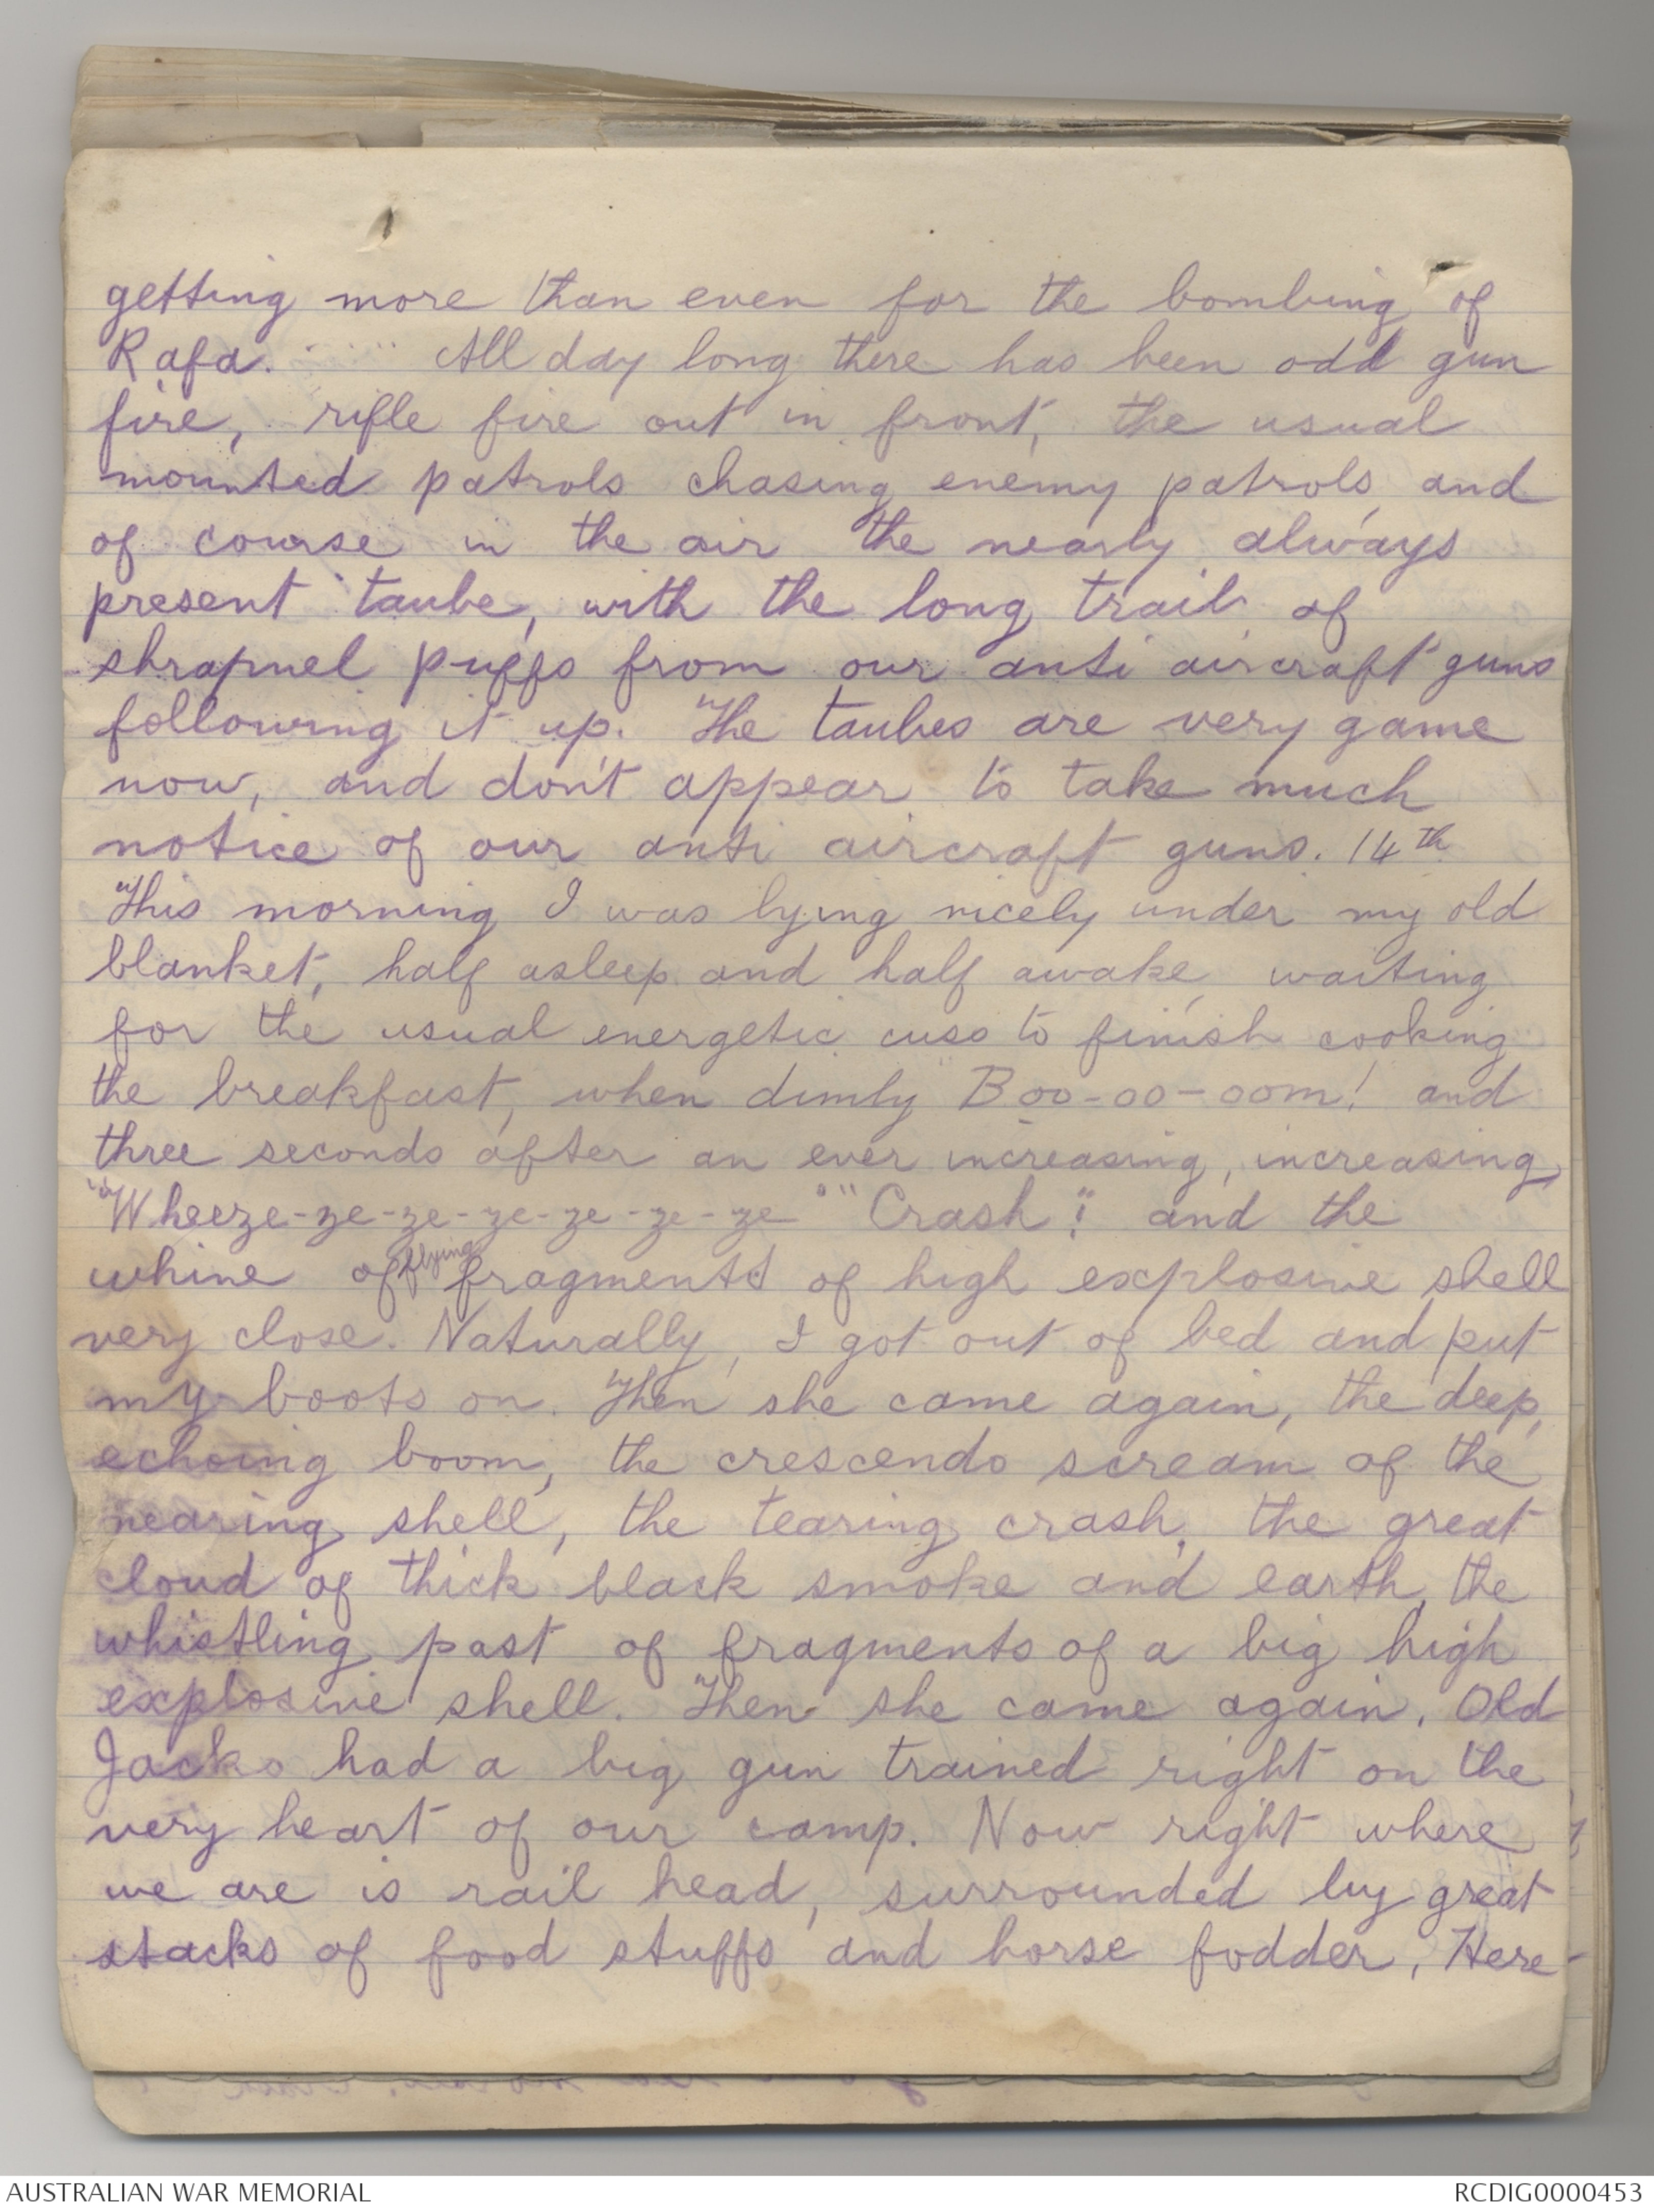 getting more than even for the bombing of
Rafa. All day long there has been odd gun
fire, rifle fire out in front, the usual
mounted patrols chasing enemy patrols, and
of course in the air the nearly always
present taube, with the long trail of
shrapnel puffs from our anti aircraft guns
following it up. The taubes are very game
now, and don't appear to take much
notice of our anti aircraft guns. 14th
This morning I was lying nicely under my old
blanket, half asleep and half awake, waiting
for the usual energetic cuss to finish cooking
the breakfast, when dimly "Boo-oo-oom! and
three seconds after an ever increasing, increasing,
"Wheeze-ze-ze-ze-ze-ze-ze" "Crash"! and the
whine of flying fragments of high explosive shell
very close. Naturally, I got out of bed and put
my boots on. Then she came again, the deep,
echoing boom, the crescendo scream of the
nearing shell, the tearing crash, the great
cloud of thick black smoke and earth, the
whistling past of fragments of a big high
explosive shell. Then she came again. Old
Jacko had a big gun trained right on the
very heart of our camp. Now right where
we are is rail head, surrounded by great
stacks of food stuffs and horse fodder. Here-
AUSTRALIAN WAR MEMORIAL
RCDIG0000453